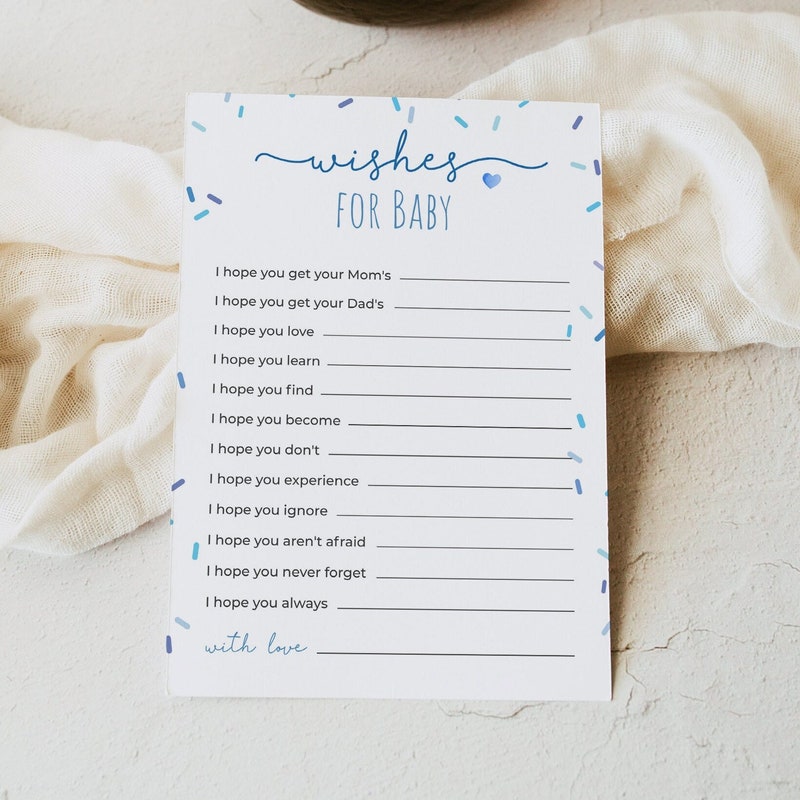 wishes
FOR BABY
I hope you get your Mom's
I hope you get your Dad's
I hope you love
I hope you learn
I hope you find
I hope you become
I hope you don't
I hope you experience
I hope you ignore
I hope you aren't afraid
I hope you never forget
I hope you always
with love